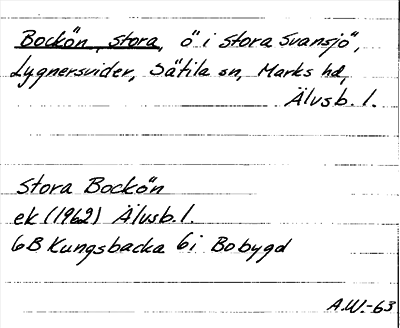 Bockön, Stora, ö i Stora Svansjö,
Lygnersvider, Sätila sn, Marks hd,
Älvsb. l.
Stora Bockön
ek (1962) Älvsb. l.
6B Kungsbacka 6i Bobygd
A.W.-63